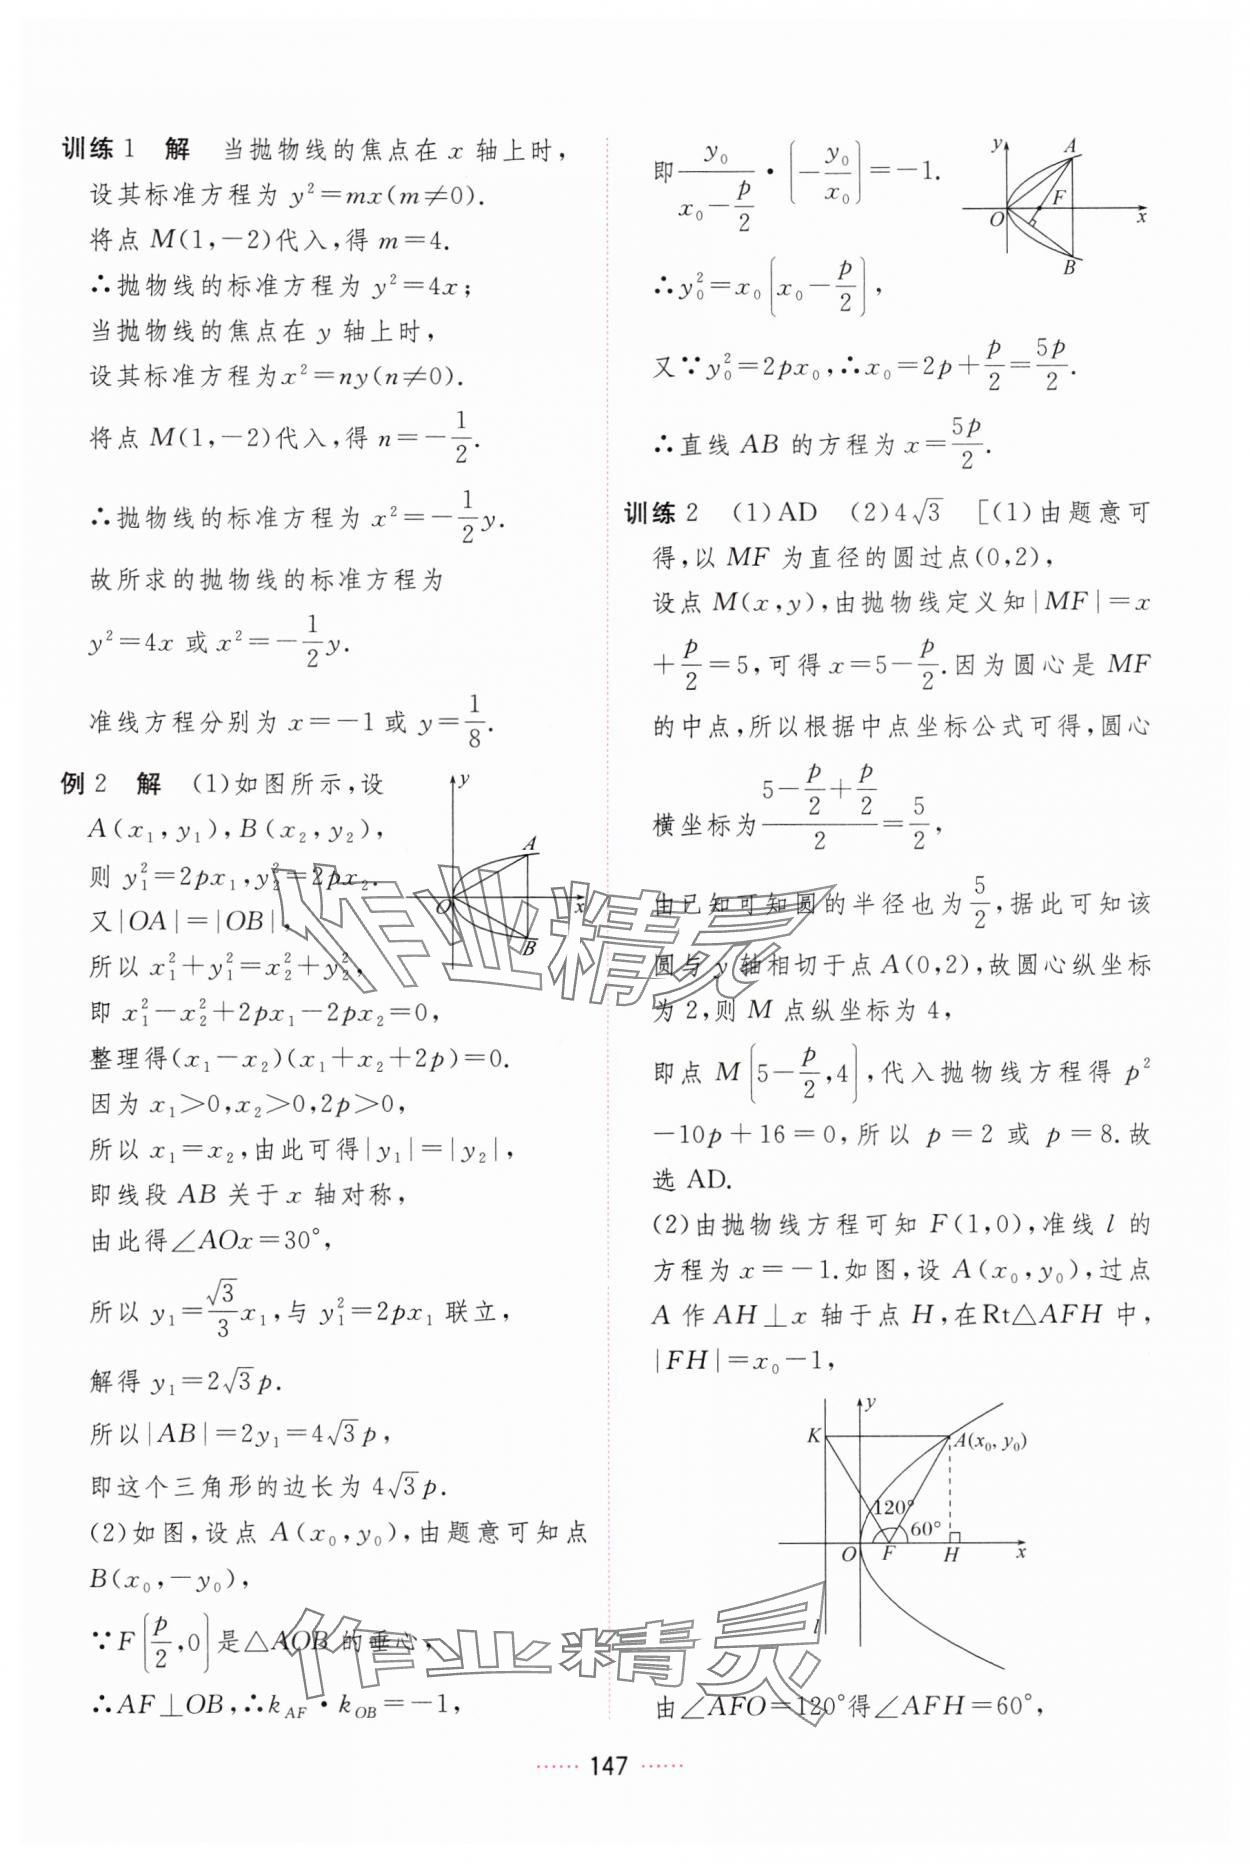 训练1 解 当抛物线的焦点在 x 轴上时,
设其标准方程为 y²=mx(m≠0).
将点 M(1,-2)代入,得 m=4.
∴抛物线的标准方程为 y²=4x;
当抛物线的焦点在 y 轴上时,
设其标准方程为x²=ny(n≠0).
将点 M(1,-2)代入,得 n=-1/2.
∴抛物线的标准方程为 x²=-1/2y.
故所求的抛物线的标准方程为
y²=4x 或 x²=-1/2y.
准线方程分别为 x=-1或 y=1/8.
例2 解 (1)如图所示,设
A(x₁,y₁),B(x₂,y₂),
则 y₁²=2px₁,y₂²=2px₂.
又|OA|=|OB|,
所以 x₁²+y₁²=x₂²+y₂²,
即 x₁²-x₂²+2px₁-2px₂=0,
整理得(x₁-x₂)(x₁+x₂+2p)=0.
因为 x₁>0,x₂>0,2p>0,
所以 x₁=x₂,由此可得|y₁|=|y₂|,
即线段 AB 关于 x 轴对称,
由此得∠AOx=30°,
所以 y₁=√3/3x₁,与 y₁²=2px₁ 联立,
解得 y₁=2√3p.
所以|AB|=2y₁=4√3p,
即这个三角形的边长为 4√3p.
(2)如图,设点 A(x₀,y₀),由题意可知点
B(x₀,-y₀),
∵F(p/2,0)是△AOB 的垂心,
∴AF⊥OB,∴k_AF·k_OB=-1,
y
A
O
x
B
即y₀/(x₀-p/2)·(-y₀/x₀)=-1.
y
A
O
F
x
B
∴y₀²=x₀(x₀-p/2),
又∵y₀²=2px₀,∴x₀=2p+p/2=5p/2.
∴直线 AB 的方程为 x=5p/2.
训练2 (1)AD (2)4√3 [(1)由题意可
得,以 MF 为直径的圆过点(0,2),
设点 M(x,y),由抛物线定义知|MF|=x
+p/2=5,可得 x=5-p/2.因为圆心是 MF
的中点,所以根据中点坐标公式可得,圆心
横坐标为(5-p/2+p/2)/2=5/2,
由已知可知圆的半径也为5/2,据此可知该
圆与 y 轴相切于点 A(0,2),故圆心纵坐标
为2,则 M 点纵坐标为4,
即点 M(5-p/2,4),代入抛物线方程得 p²
-10p+16=0,所以 p=2 或 p=8.故
选 AD.
(2)由抛物线方程可知 F(1,0),准线 l 的
方程为 x=-1.如图,设 A(x₀,y₀),过点
A 作 AH⊥x 轴于点 H,在Rt△AFH 中,
|FH|=x₀-1,
y
K
A(x₀,y₀)
120°
60°
O
F
H
x
l
由∠AFO=120°得∠AFH=60°,
147
作业精灵
作业精灵